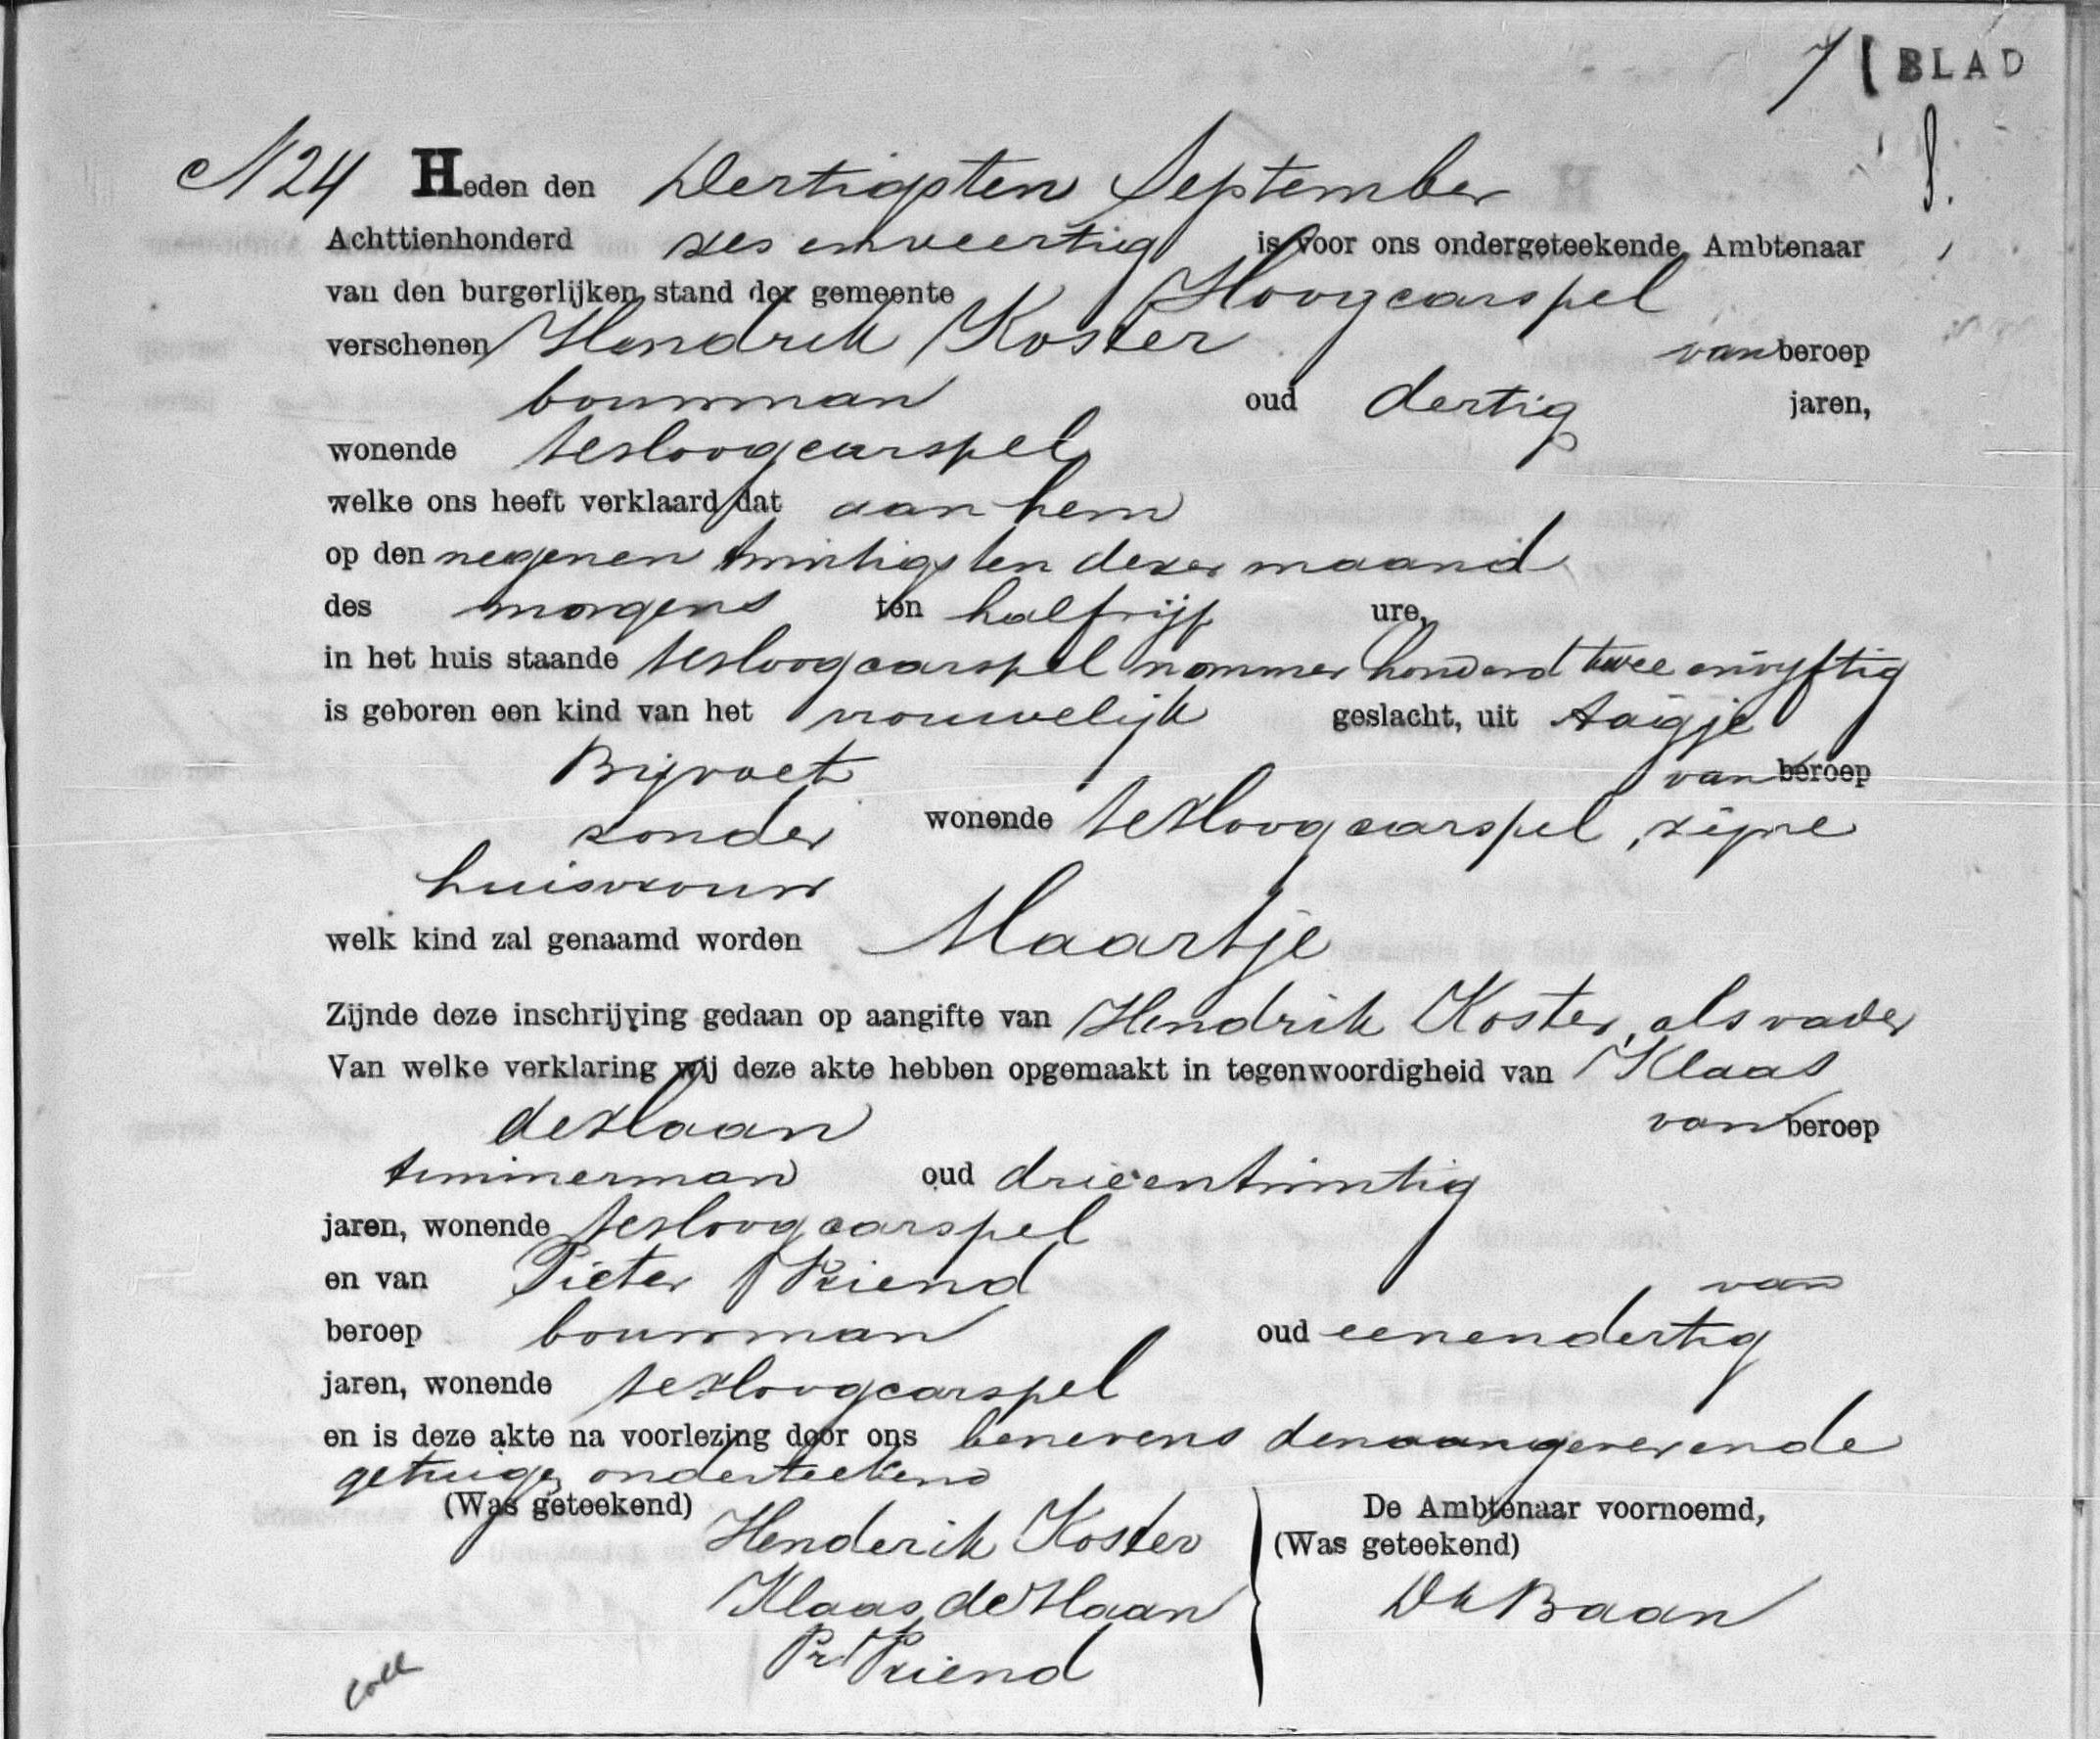 7 ( BLAD
N 24 Heden den Dertigsten September
Achttienhonderd zes en veertig is voor ons ondergeteekende Ambtenaar
van den burgerlijken stand der gemeente Hoogcarspel
verschenen Hendrik Koster van beroep
bouwman oud dertig jaren,
wonende te Hoogcarspel
welke ons heeft verklaard dat aan hem
op den negenen twintigsten dezer maand
des morgens ten half vijf ure,
in het huis staande te Hoogcarspel nommer honderd twee en vyftig
is geboren een kind van het vrouwelijk geslacht, uit Aagje
Bijvoet van beroep
zonder wonende te Hoogcarspel, zijne
huisvrouw
welk kind zal genaamd worden Maartje
Zijnde deze inschrijving gedaan op aangifte van Hendrik Koster, als vader
Van welke verklaring wij deze akte hebben opgemaakt in tegenwoordigheid van Klaas
de Haan van beroep
timmerman oud drieentwintig
jaren, wonende te Hoogcarspel
en van Pieter Vriend van
beroep bouwman oud eenendertig
jaren, wonende te Hoogcarspel
en is deze akte na voorlezing door ons benevens den aangever en de
getuigen onderteekend
(Was geteekend) De Ambtenaar voornoemd,
Henderik Koster (Was geteekend)
Klaas de Haan Dk Baan
Pr Vriend
Coll